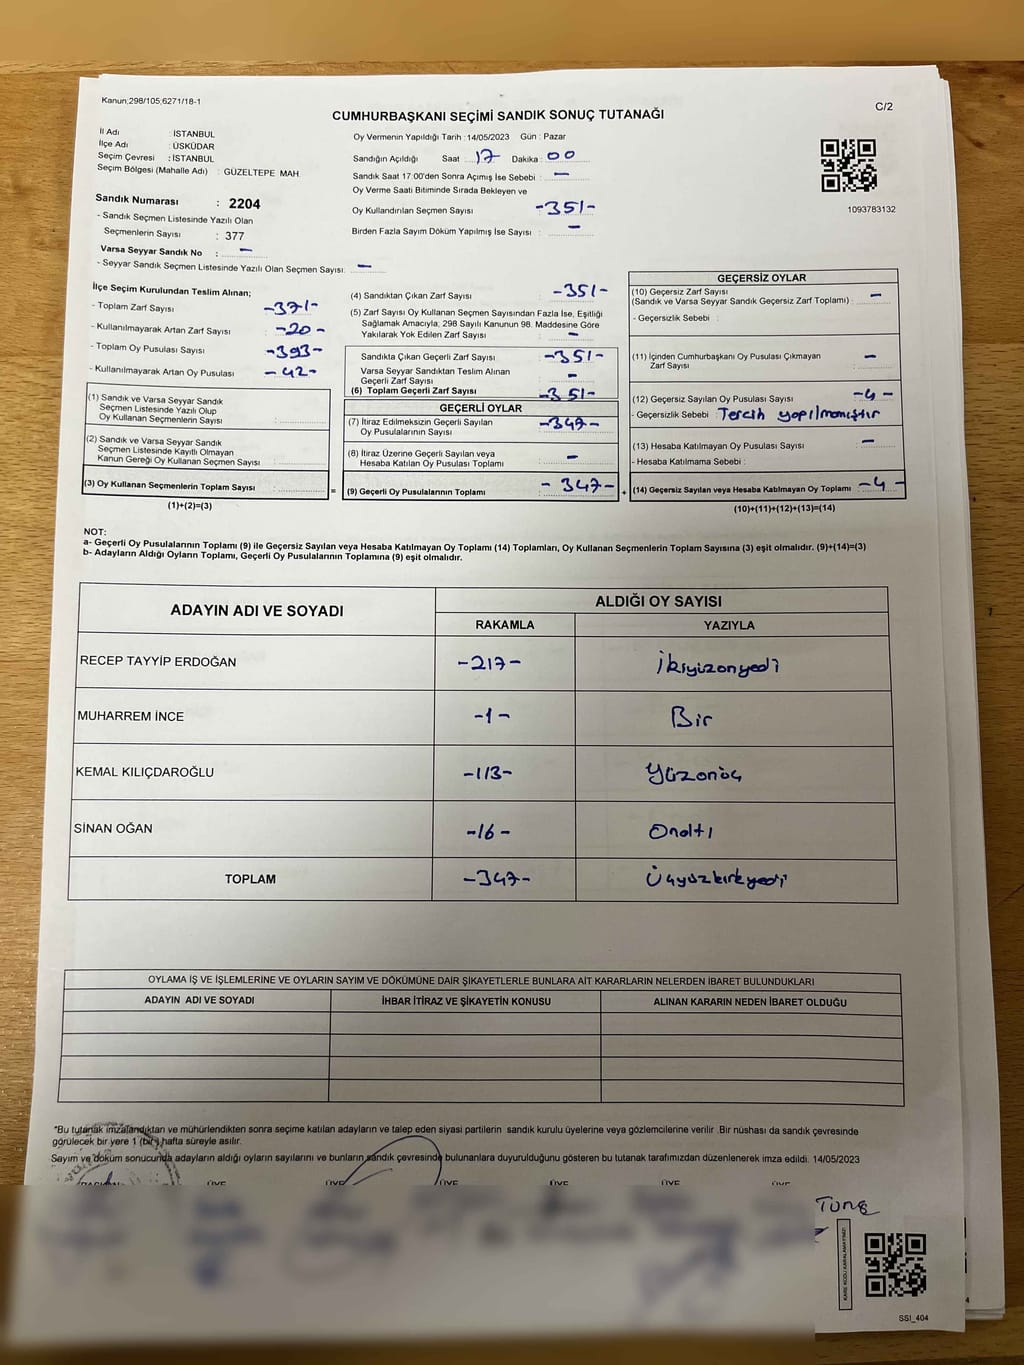 Kanun;298/105;6271/18-1
C/2
CUMHURBAŞKANI SEÇİMİ SANDIK SONUÇ TUTANAĞI
İl Adı : İSTANBUL
İlçe Adı : ÜSKÜDAR
Seçim Çevresi : İSTANBUL
Seçim Bölgesi (Mahalle Adı) : GÜZELTEPE MAH
Sandık Numarası : 2204
- Sandık Seçmen Listesinde Yazılı Olan
Seçmenlerin Sayısı : 377
Varsa Seyyar Sandık No : -
- Seyyar Sandık Seçmen Listesinde Yazılı Olan Seçmen Sayısı: -
Oy Vermenin Yapıldığı Tarih : 14/05/2023 Gün : Pazar
Sandığın Açıldığı Saat : 17 Dakika : 00
Sandık Saat 17.00'den Sonra Açımış İse Sebebi : -
Oy Verme Saati Bitiminde Sırada Bekleyen ve
Oy Kullandırılan Seçmen Sayısı -351-
Birden Fazla Sayım Döküm Yapılmış İse Sayısı : -
1093783132
İlçe Seçim Kurulundan Teslim Alınan;
- Toplam Zarf Sayısı : -371-
- Kullanılmayarak Artan Zarf Sayısı : -20-
- Toplam Oy Pusulası Sayısı : -393-
- Kullanılmayarak Artan Oy Pusulası : -42-
(1) Sandık ve Varsa Seyyar Sandık
Seçmen Listesinde Yazılı Olup
Oy Kullanan Seçmenlerin Sayısı :
(2) Sandık ve Varsa Seyyar Sandık
Seçmen Listesinde Kayıtlı Olmayan
Kanun Gereği Oy Kullanan Seçmen Sayısı :
(3) Oy Kullanan Seçmenlerin Toplam Sayısı : =
(1)+(2)=(3)
(4) Sandıktan Çıkan Zarf Sayısı : -351-
(5) Zarf Sayısı Oy Kullanan Seçmen Sayısından Fazla İse, Eşitliği
Sağlamak Amacıyla; 298 Sayılı Kanunun 98. Maddesine Göre
Yakılarak Yok Edilen Zarf Sayısı : -
Sandıkta Çıkan Geçerli Zarf Sayısı : -351-
Varsa Seyyar Sandıktan Teslim Alınan
Geçerli Zarf Sayısı : -
(6) Toplam Geçerli Zarf Sayısı : -351-
GEÇERLİ OYLAR
(7) İtiraz Edilmeksizin Geçerli Sayılan
Oy Pusulalarının Sayısı : -347-
(8) İtiraz Üzerine Geçerli Sayılan veya
Hesaba Katılan Oy Pusulası Toplamı : -
(9) Geçerli Oy Pusulalarının Toplamı : -347- +
GEÇERSİZ OYLAR
(10) Geçersiz Zarf Sayısı
(Sandık ve Varsa Seyyar Sandık Geçersiz Zarf Toplamı) : -
- Geçersizlik Sebebi :
(11) İçinden Cumhurbaşkanı Oy Pusulası Çıkmayan
Zarf Sayısı : -
(12) Geçersiz Sayılan Oy Pusulası Sayısı : -4-
- Geçersizlik Sebebi : Tercih yapılmamıştır
(13) Hesaba Katılmayan Oy Pusulası Sayısı : -
- Hesaba Katılmama Sebebi :
(14) Geçersiz Sayılan veya Hesaba Katılmayan Oy Toplamı : -4-
(10)+(11)+(12)+(13)=(14)
NOT:
a- Geçerli Oy Pusulalarının Toplamı (9) ile Geçersiz Sayılan veya Hesaba Katılmayan Oy Toplamı (14) Toplamları, Oy Kullanan Seçmenlerin Toplam Sayısına (3) eşit olmalıdır. (9)+(14)=(3)
b- Adayların Aldığı Oyların Toplamı, Geçerli Oy Pusulalarının Toplamına (9) eşit olmalıdır.
ADAYIN ADI VE SOYADI ALDIĞI OY SAYISI
RAKAMLA YAZIYLA
RECEP TAYYİP ERDOĞAN -217- İkiyüzonyedi
MUHARREM İNCE -1- Bir
KEMAL KILIÇDAROĞLU -113- Yüzonüç
SİNAN OĞAN -16- Onaltı
TOPLAM -347- Üçyüzkırkyedi
OYLAMA İŞ VE İŞLEMLERİNE VE OYLARIN SAYIM VE DÖKÜMÜNE DAİR ŞİKAYETLERLE BUNLARA AİT KARARLARIN NELERDEN İBARET BULUNDUKLARI
ADAYIN ADI VE SOYADI İHBAR İTİRAZ VE ŞİKAYETİN KONUSU ALINAN KARARIN NEDEN İBARET OLDUĞU
*Bu tutanak imzalandıktan ve mühürlendikten sonra seçime katılan adayların ve talep eden siyasi partilerin sandık kurulu üyelerine veya gözlemcilerine verilir .Bir nüshası da sandık çevresinde
görülecek bir yere 1 (bir) hafta süreyle asılır.
Sayım ve döküm sonucunda adayların aldığı oyların sayılarını ve bunların sandık çevresinde bulunanlara duyurulduğunu gösteren bu tutanak tarafımızdan düzenlenerek imza edildi. 14/05/2023
BAŞKAN ÜYE ÜYE ÜYE ÜYE ÜYE ÜYE
Tunç
KARE KODU KARALAMAYINIZ!
SSI_404